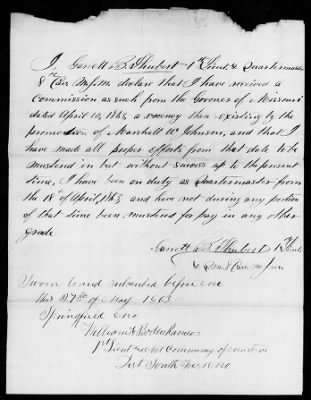 I, Garrett B. Shubert 1st Lieut. & Quartermaster
8" Cav. M.S.M. declare that I have received a
Commission as such from the Govenor of Missouri
dated April 18, 1863, a vacancy then existing by the
promotion of Marshall W. Johnson, and that I
have made all proper efforts from that date to be
mustered in but without success up to the present
time, I have been on duty as Quartermaster from
the 18 of April, 1863 and have not during any portion
of that time been mustered for pay in any other
grade
Garrett B. Shubert 1st Lieut.
& Qr. 8 Cav M.S.M
Sworn to and subscribed before me
this 27th of May 1863
Springfield Mo
William
1st Lieut and Commissary of Musters
Dist South West Mo